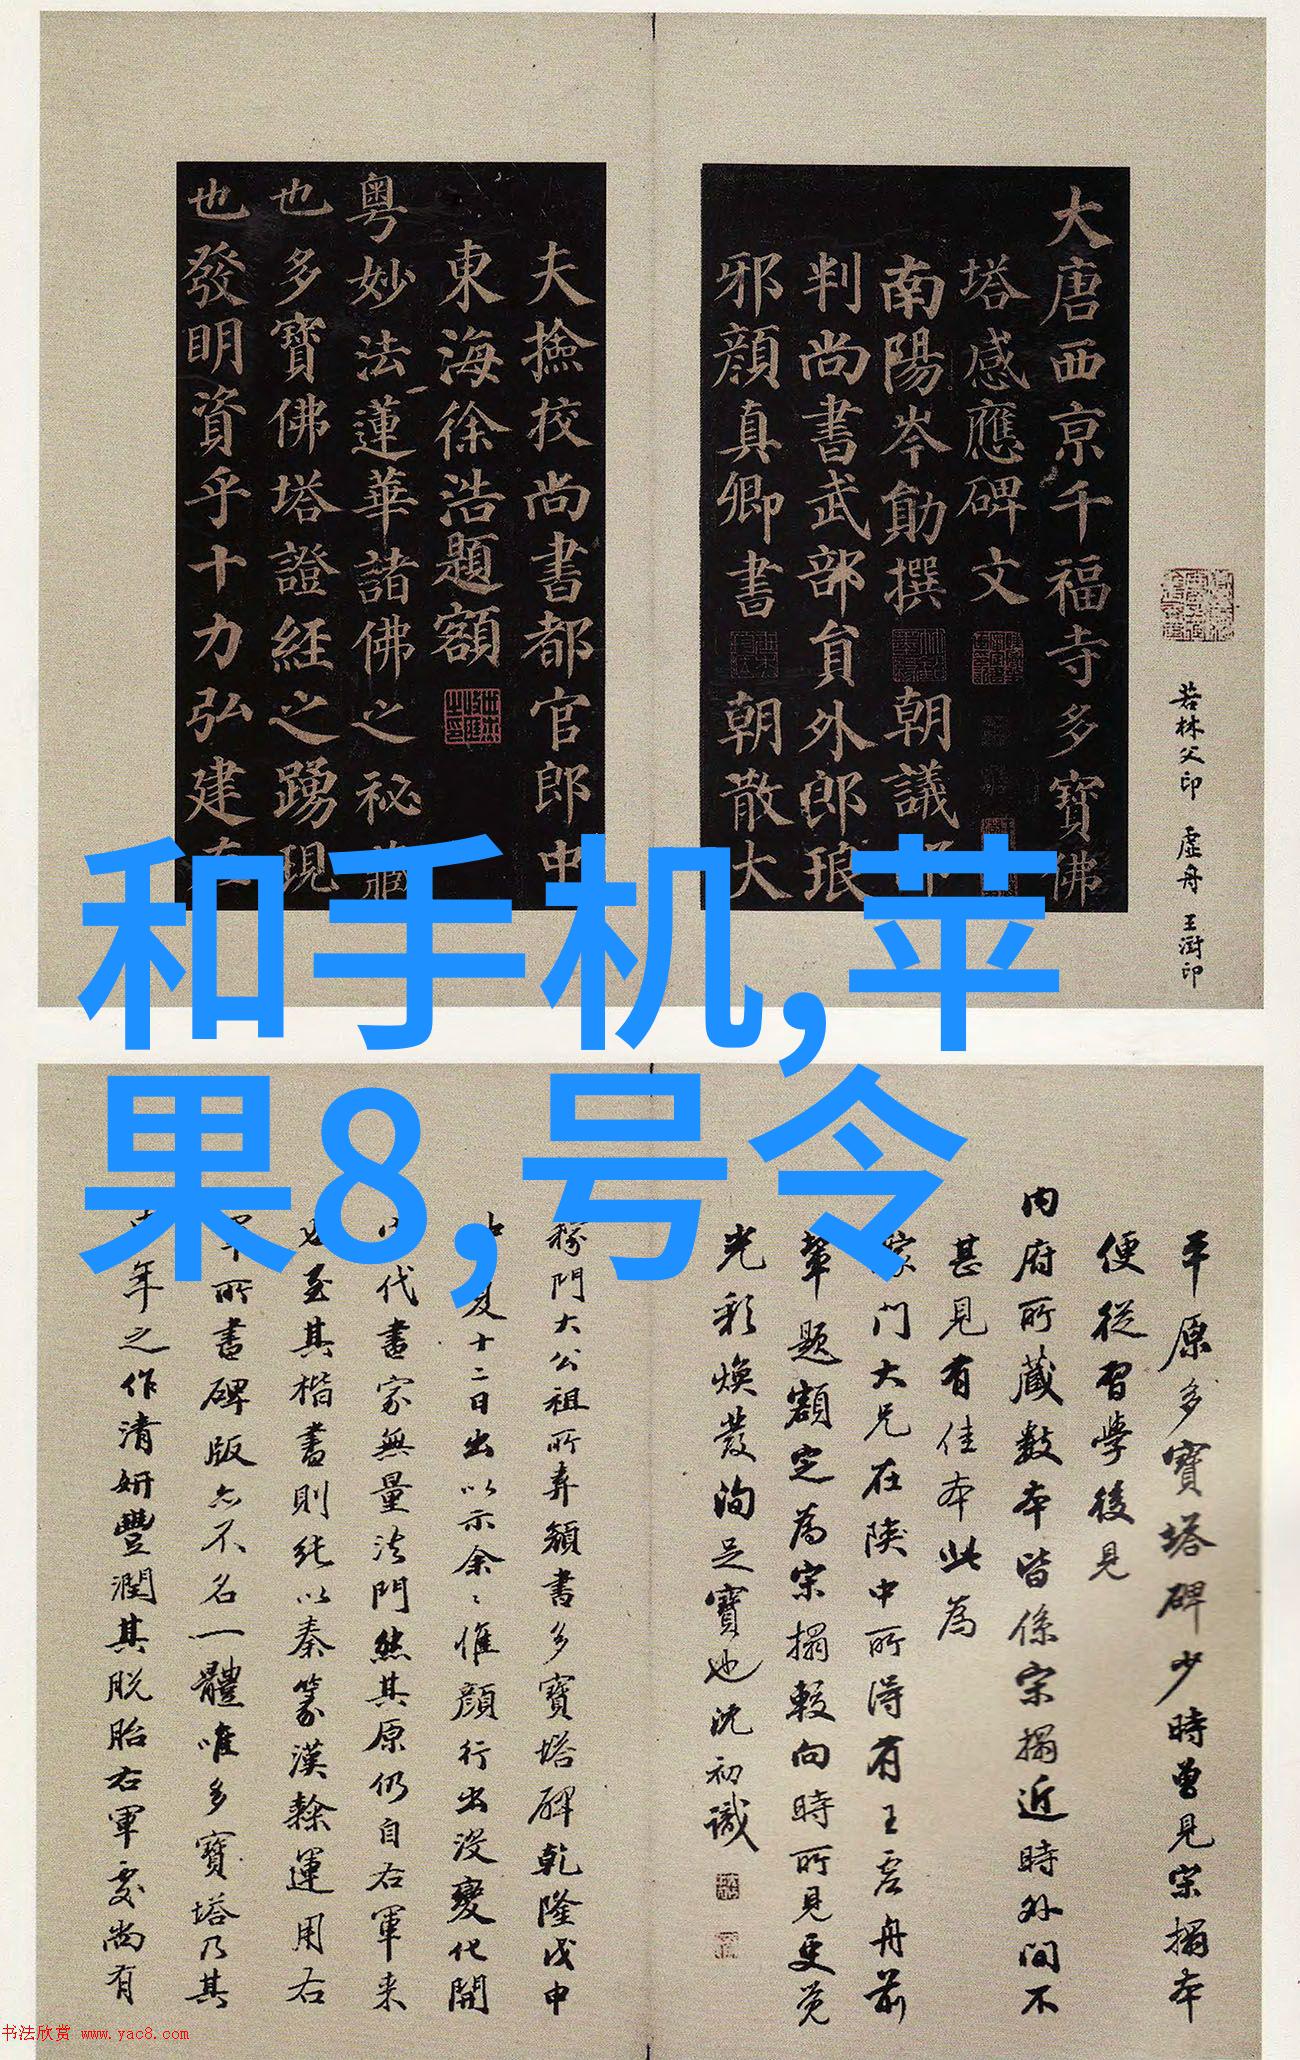 大唐西京千福寺多寶佛
塔感應碑文
南陽岑勛撰 朝議郎
判尚書武部員外郎琅
邪顏真卿書 朝散大
夫撿挍尚書都官郎中
東海徐浩題額
粵妙法蓮華諸佛之祕藏
也多寶佛塔證經之踴現
也發明資乎十力弘建在
若林父印 虛舟 王澍印
和手机,苹
果8,号令
平原多寶塔碑少時曾見宋搨本
便從習學後見
內府所藏數本皆係宋搨近時外間不
甚見有佳本此為
門大兄在陝中所得有王虛舟前
輩題額定為宋搨較向時所見更覺
光彩煥發洵足寶也沈初識
稼門大公祖所弆顏書多寶塔碑乾隆戊申
夏十二日出以示余〻惟顏行出沒變化開
代書家無量法門然其原仍自右軍来
至其楷書則純以秦篆漢隸運用右
軍所書碑版亦不名一體唯多寶塔乃其
年之作清妍豐潤其脫胎右軍處尚有
书法欣赏 www.yac8.com